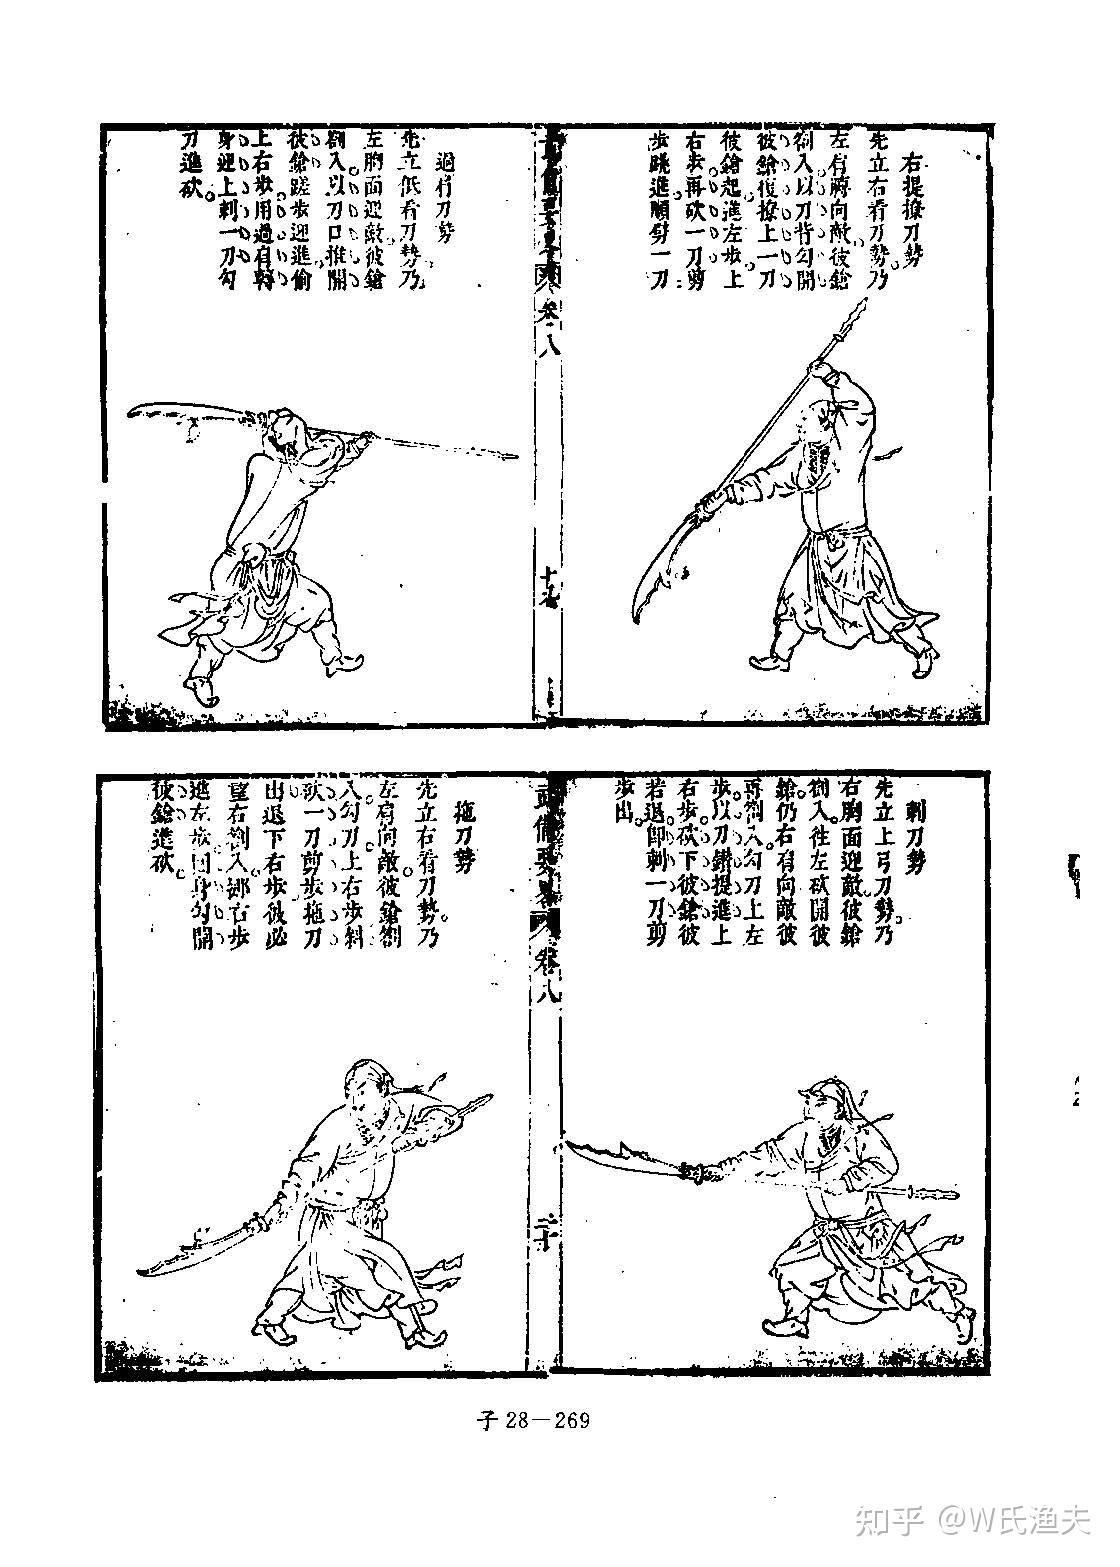 右提撩刀勢
先立右看刀勢乃
左肩向敵彼鎗
劄入以刀背勾開
彼鎗復撩上一刀
彼鎗起進左步上
右步再砍一刀剪
步跳進順劈一刀
卷八
過肩刀勢
先立低看刀勢乃
左胸面迎敵彼鎗
劄入以刀口推開
彼鎗蹉步迎進偷
上右步用過肩轉
身迎上刺一刀勾
刀進砍
刺刀勢
先立上弓刀勢乃
右胸面迎敵彼鎗
劄入往左砍開彼
鎗仍右肩向敵彼
再劄入勾刀上左
步以刀鑽提進上
右步砍下彼鎗彼
若退即刺一刀剪
步出
武備要畧
卷八
二十
拖刀勢
先立右看刀勢乃
左肩向敵彼鎗劄
入勾刀上右步斜
砍一刀剪步拖刀
出退下右步彼必
望右劄入挪右步
進左步回身勾開
彼鎗進砍
子28—269
知乎 @W氏渔夫